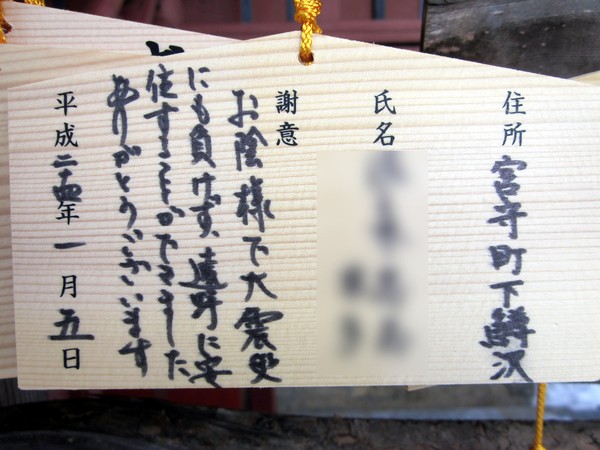 住所 宮守町下鱒沢
氏名
謝意
お陰様で大震災
にも負けず、遠野に安
住することができました
ありがとうございます
平成二十四年一月五日